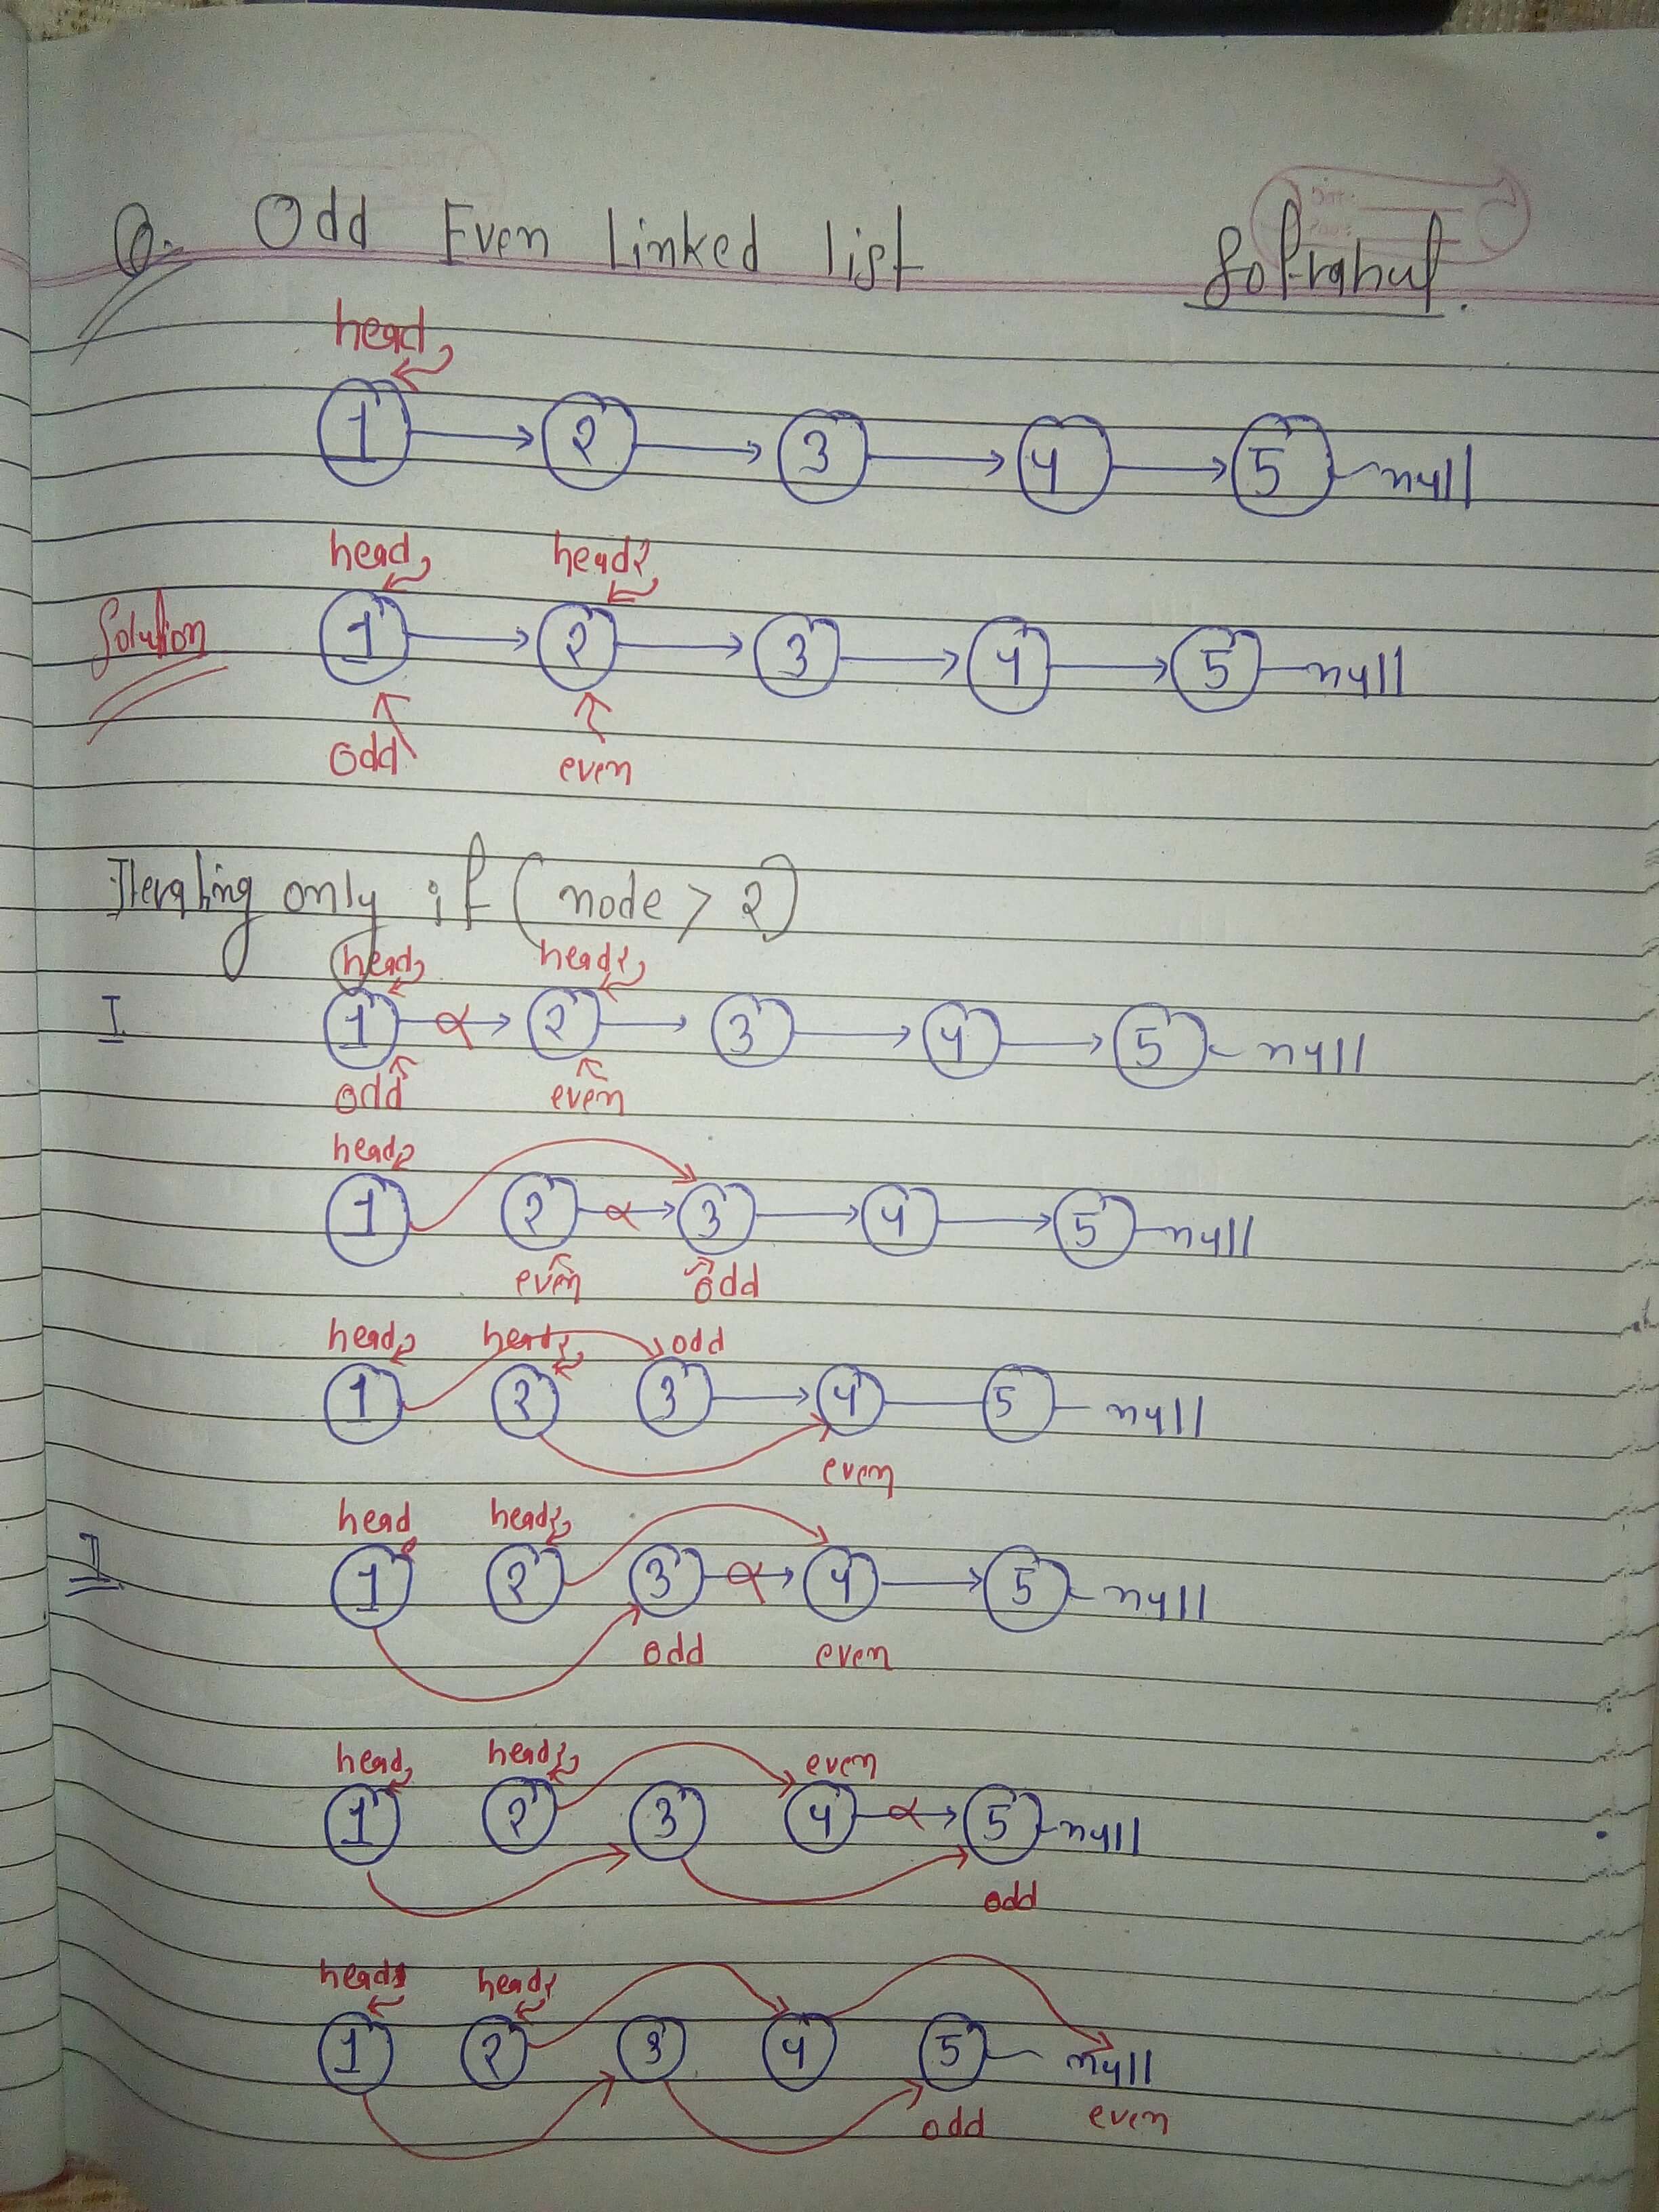 Q. Odd Even Linked list
Solrahul.
head
1 2 3 4 5 null
head head2
Solution 1 2 3 4 5 null
odd even
Iterating only if (node > 2)
head head2
I 1 2 3 4 5 null
odd even
head
1 2 3 4 5 null
even odd
head head2 odd
1 2 3 4 5 null
even
head head2
I 1 2 3 4 5 null
odd even
head head2 even
1 2 3 4 5 null
odd
head head2
1 2 3 4 5 null
odd even